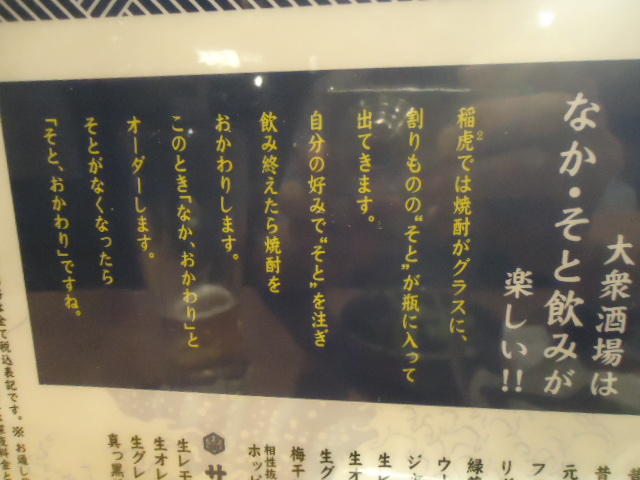 大衆酒場は
なか・そと飲みが
楽しい!!
稲虎²では焼酎がグラスに、
割りものの“そと”が瓶に入って
出てきます。
自分の好みで“そと”を注ぎ
飲み終えたら焼酎を
おかわりします。
このとき「なか、おかわり」と
オーダーします。
そとがなくなったら
「そと、おかわり」ですね。
昔
元
フ
リ
緑
ウー
ジャ
生レ
生オ
生グ
梅干
相性抜
ホッピ
サ
生レモ
生オレ
生グレ
真っ黒
は全て税込表記です。※お通し
深夜料金と